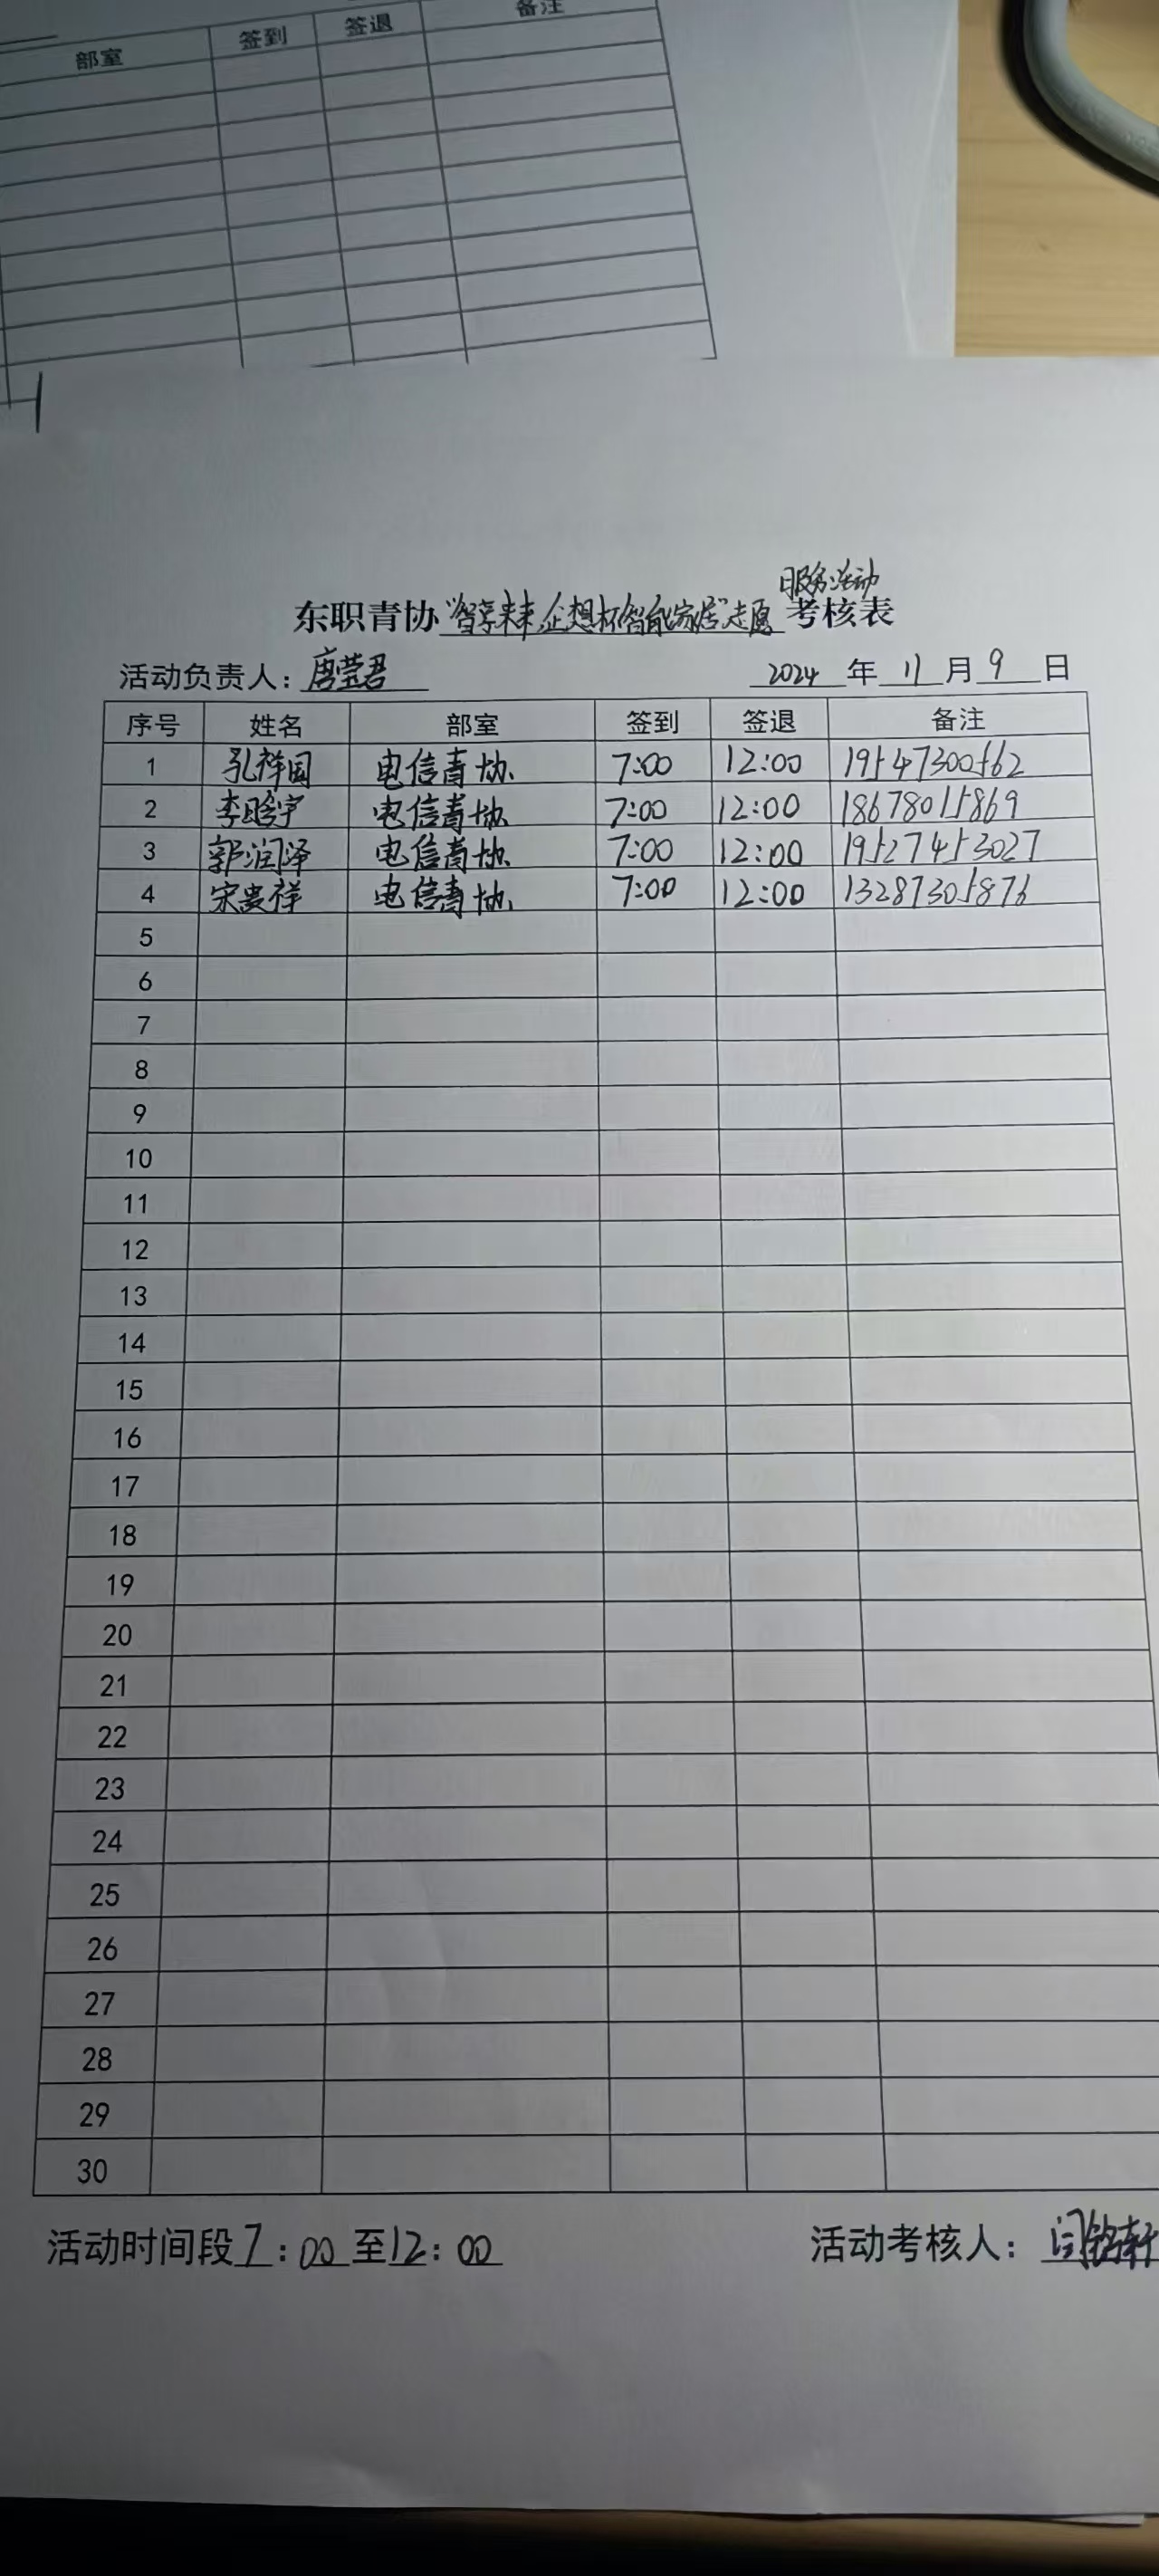 部室 签到 签退 备注
服务活动
东职青协"智享未来,企想杯智能家居"志愿考核表
活动负责人:唐莹君 2024年11月9日
序号 姓名 部室 签到 签退 备注
1 孔祥国 电信青协 7:00 12:00 19547300562
2 李晗宇 电信青协 7:00 12:00 18678015869
3 郭润泽 电信青协 7:00 12:00 19527453027
4 宋贵祥 电信青协 7:00 12:00 13287305876
5
6
7
8
9
10
11
12
13
14
15
16
17
18
19
20
21
22
23
24
25
26
27
28
29
30
活动时间段7:00至12:00 活动考核人:闫铭轩